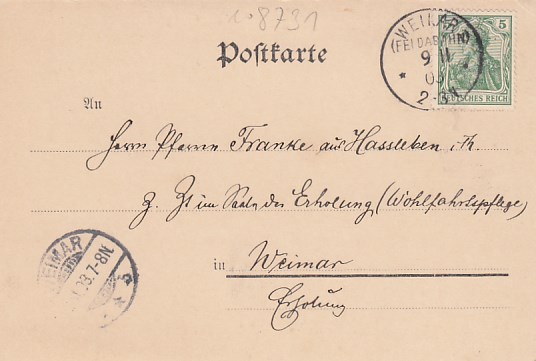 8731
Postkarte
WEIMAR
(FELDABAHN)
9 11
03
2-3N
5
DEUTSCHES REICH
An
Herrn Pfarrer Franke aus Hassleben i. Th.
z. Zt im Saale der Erholung (Wohlfahrtspflege)
in Weimar
Erholung
WEIMAR
.03.7-8N.